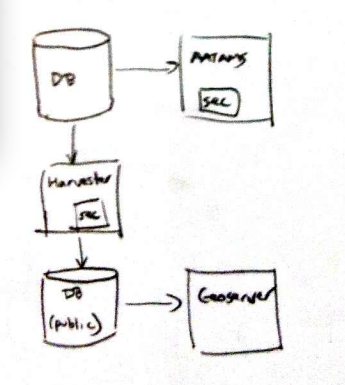 DB
AATAMS
sec
Harvester
sec
DB
(public)
Geoserver